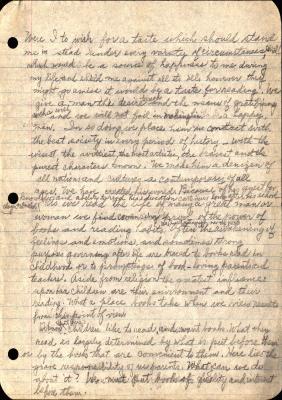 Were I to wish for a taste which should stand
me in stead under every variety of circumstances and
which would be a source of happiness to me during
my life and shield me against all its ills however things
might go amiss it would be a taste for reading. We
give a man the desire and the means of gratifying
and we will not fail in making him a happy
man. In so doing we place him in contact with
the best society in every period of history with the
wisest the wittiest the the bravest and the
purest characters known. We make him a denizen of
all nations and cultures, a contemporary of all
ages. We have created his world. Because of his quest for
ability to read
we read the life of many a great man or
woman we find commentary of the power of
books and reading habits. Often the awakening of
feelings and emotions, and sometimes strong
purpose governing after life are traced to books read in
childhood or to promptings of book-loving parents and
teachers. Aside from religion the greatest influences
upon our children are their environment and their
reading. What a place books take when we view results
from this point of view.
Children like to read and want books. What they
read is largely determined by what is put before them
or by the books that are convenient to them. Here lies the
grave responsibility of us parents. What can we do
about it? We must put books of quality and interest
before them.